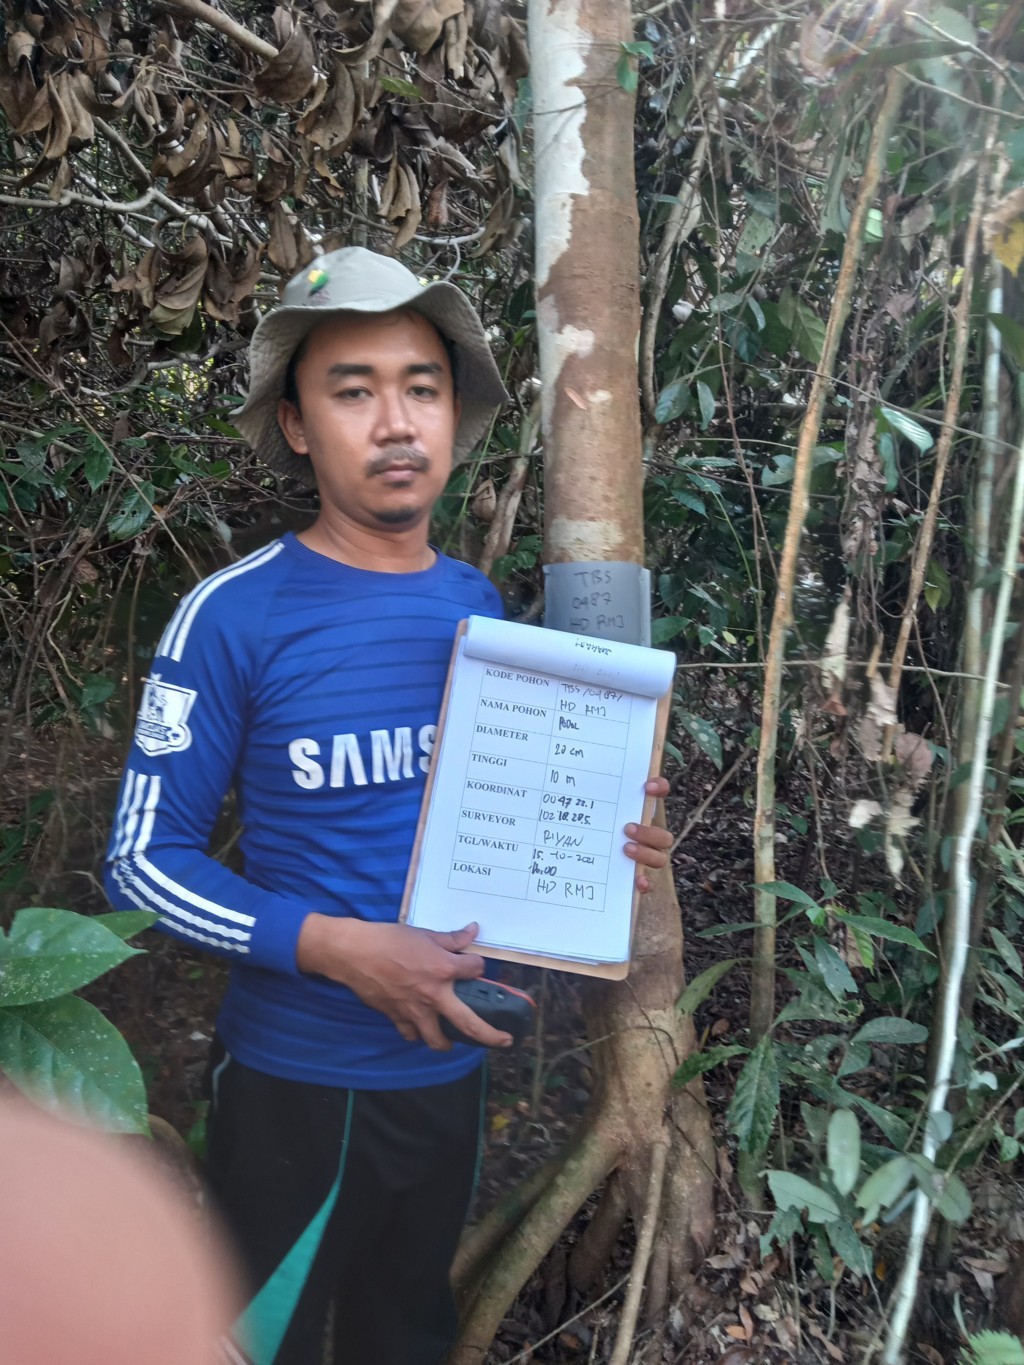 TBS
0487
HD RMJ
SAMS
KODE POHON TBS/0487/
HD RMJ
NAMA POHON
DIAMETER 20 cm
TINGGI 10 m
KOORDINAT 00 47 22.1
102 18 285
SURVEYOR RIYAN
TGL/WAKTU 15-10-2021
14.00
LOKASI HD RMJ